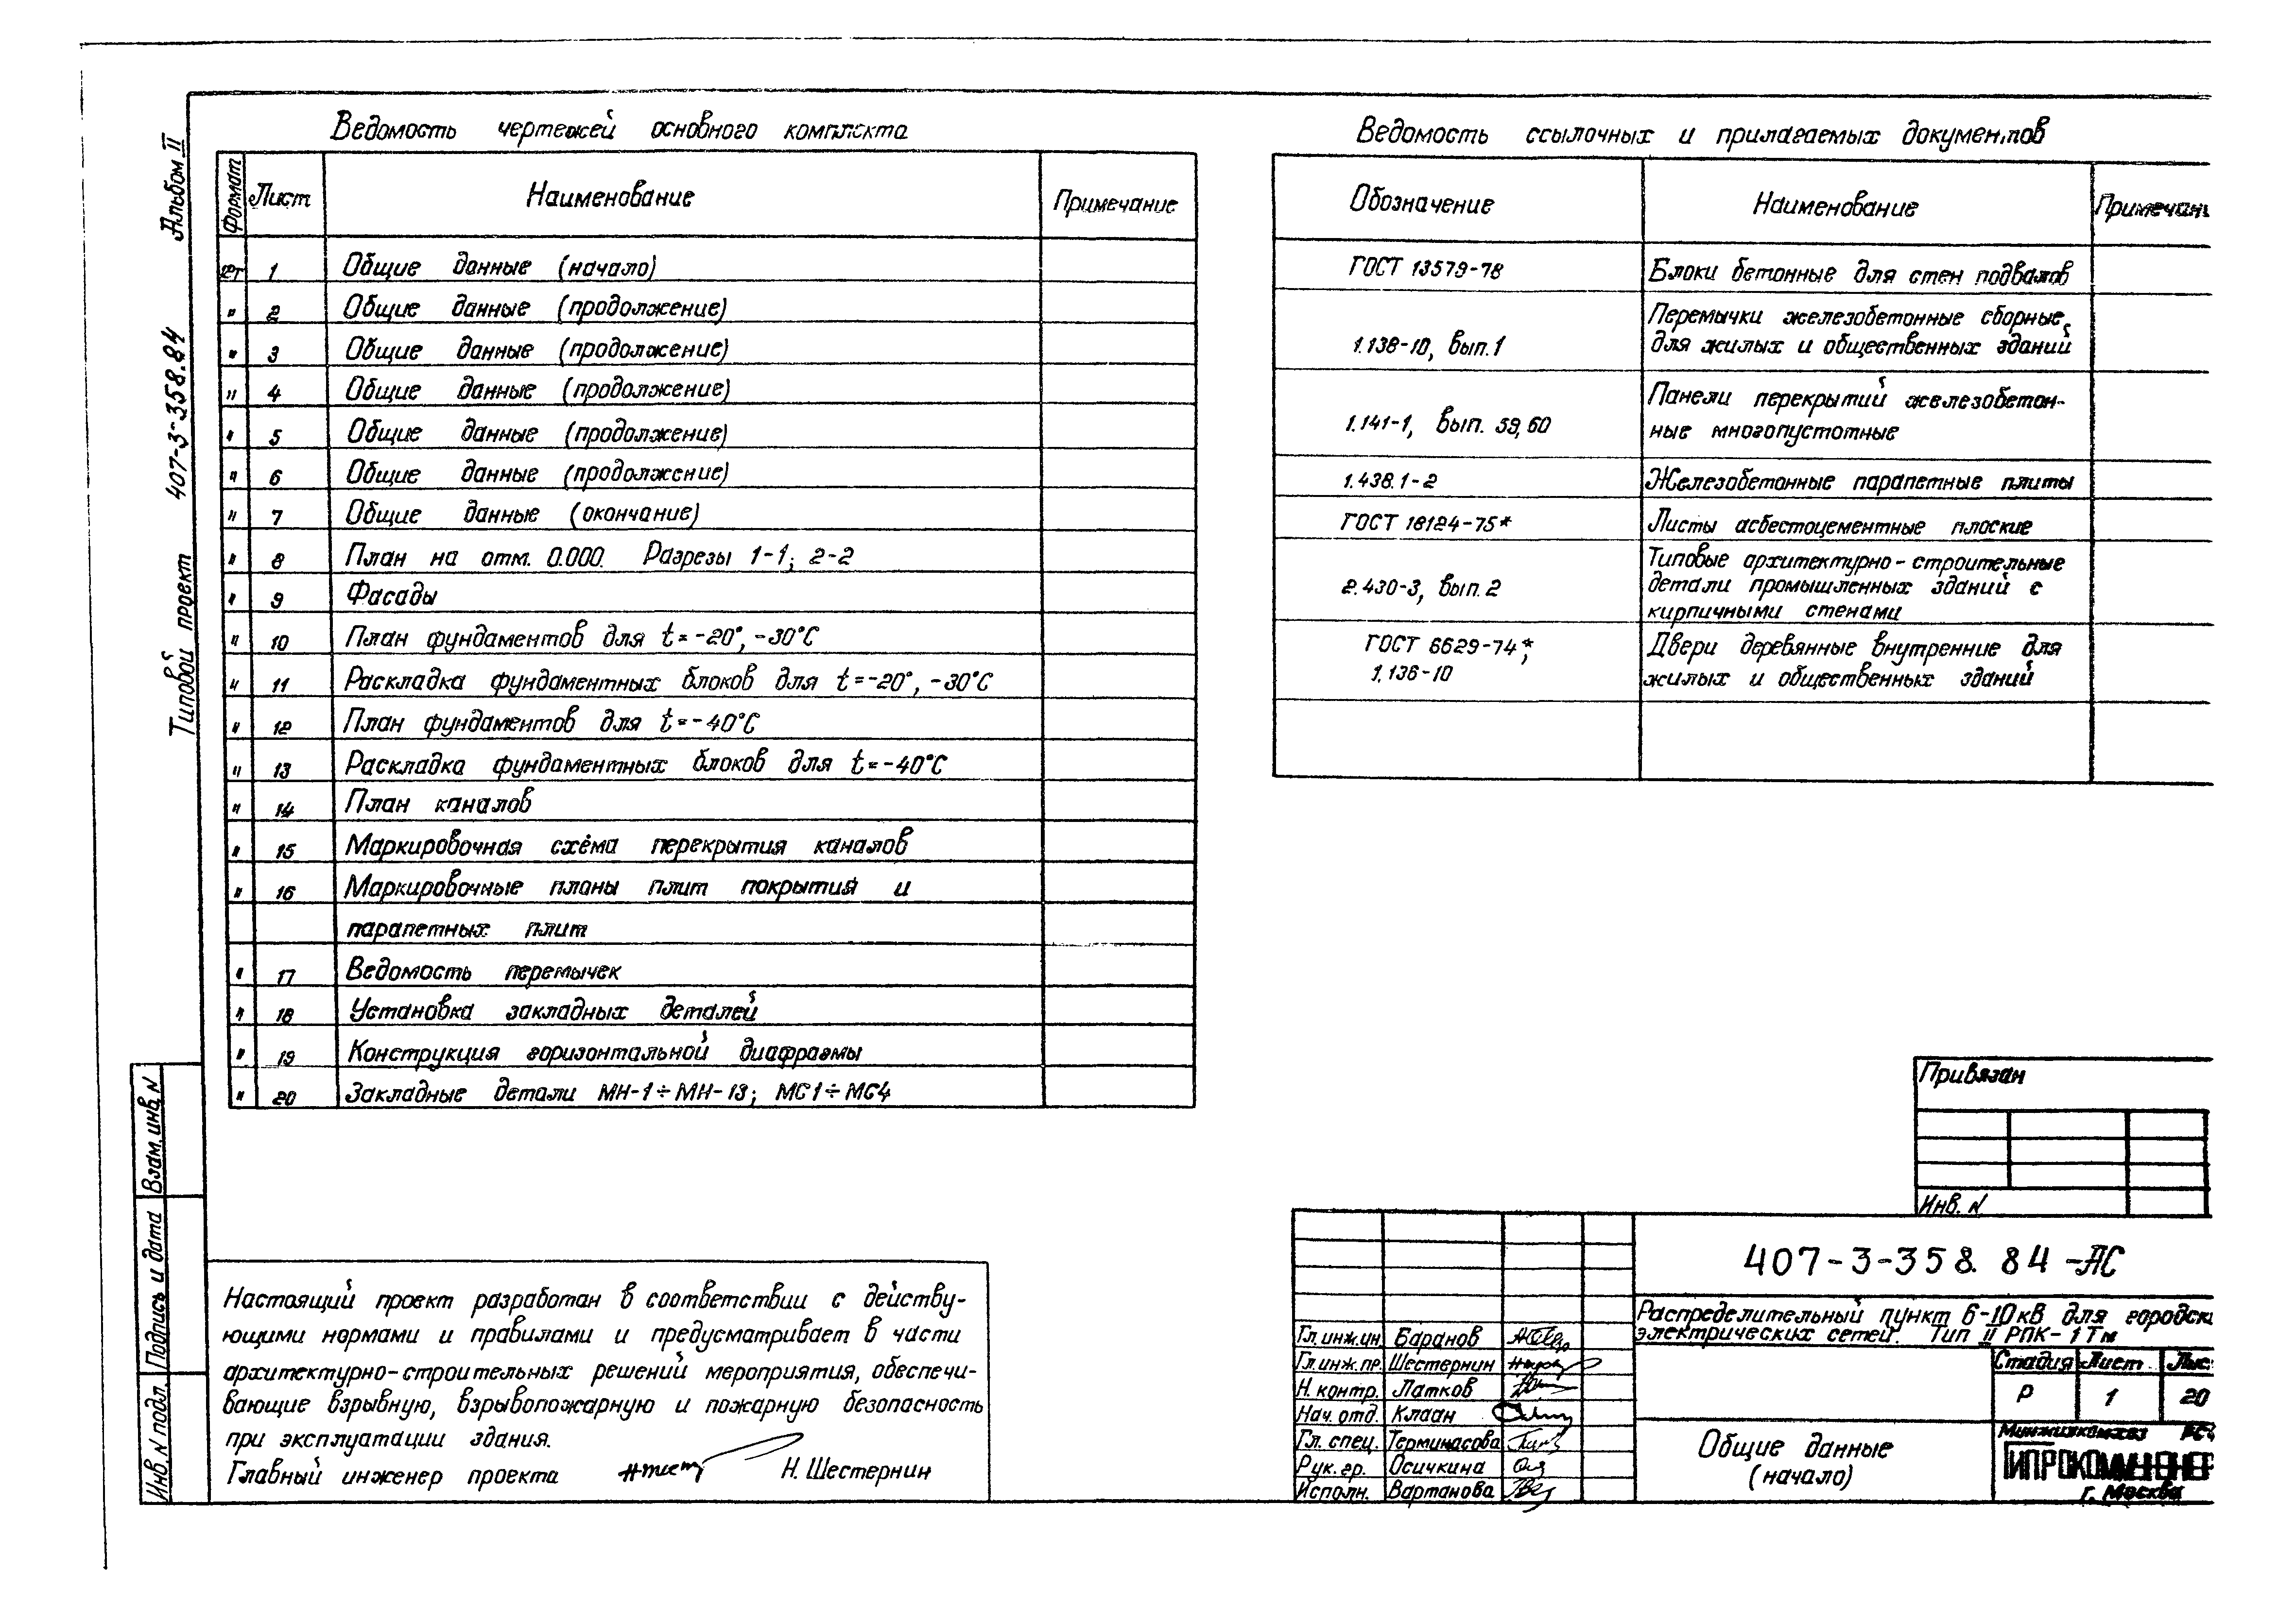 Альбом II
Типовой проект 407-3-358.84
Ведомость чертежей основного комплекта
Формат Лист Наименование Примечание
2т 1 Общие данные (начало)
" 2 Общие данные (продолжение)
" 3 Общие данные (продолжение)
" 4 Общие данные (продолжение)
" 5 Общие данные (продолжение)
" 6 Общие данные (продолжение)
" 7 Общие данные (окончание)
" 8 План на отм. 0.000. Разрезы 1-1; 2-2
" 9 Фасады
" 10 План фундаментов для t=-20°, -30°С
" 11 Раскладка фундаментных блоков для t=-20°, -30°С
" 12 План фундаментов для t=-40°С
" 13 Раскладка фундаментных блоков для t=-40°С
" 14 План каналов
" 15 Маркировочная схема перекрытия каналов
" 16 Маркировочные планы плит покрытия и
парапетных плит
" 17 Ведомость перемычек
" 18 Установка закладных деталей
" 19 Конструкция горизонтальной диафрагмы
" 20 Закладные детали МН-1÷МН-13; МС1÷МС4
Ведомость ссылочных и прилагаемых документов
Обозначение Наименование Примечани
ГОСТ 13579-78 Блоки бетонные для стен подвалов
1.138-10, вып.1 Перемычки железобетонные сборные
для жилых и общественных зданий
1.141-1, вып. 59,60 Панели перекрытий железобетон-
ные многопустотные
1.438.1-2 Железобетонные парапетные плиты
ГОСТ 18124-75* Листы асбестоцементные плоские
2.430-3, вып.2 Типовые архитектурно-строительные
детали промышленных зданий с
кирпичными стенами
ГОСТ 6629-74*, Двери деревянные внутренние для
1.136-10 жилых и общественных зданий
Привязан
Инв. N
Взам. инв. N
Подпись и дата
Инв. N подл.
Настоящий проект разработан в соответствии с действу-
ющими нормами и правилами и предусматривает в части
архитектурно-строительных решений мероприятия, обеспечи-
вающие взрывную, взрывопожарную и пожарную безопасность
при эксплуатации здания.
Главный инженер проекта Н. Шестернин
407-3-358.84-АС
Распределительный пункт 6-10кВ для городск
электрических сетей. Тип II РПК-1Тм
Гл.инж.ин. Баранов
Гл.инж.пр. Шестернин
Н. контр. Латков
Нач. отд. Клаан
Гл. спец. Терминасова
Рук. гр. Осичкина
Исполн. Вартанова
Стадия Лист Лис
Р 1 20
Общие данные
(начало)
Минжилкомхоз РС
ГИПРОКОММУНЭНЕР
г. Москва